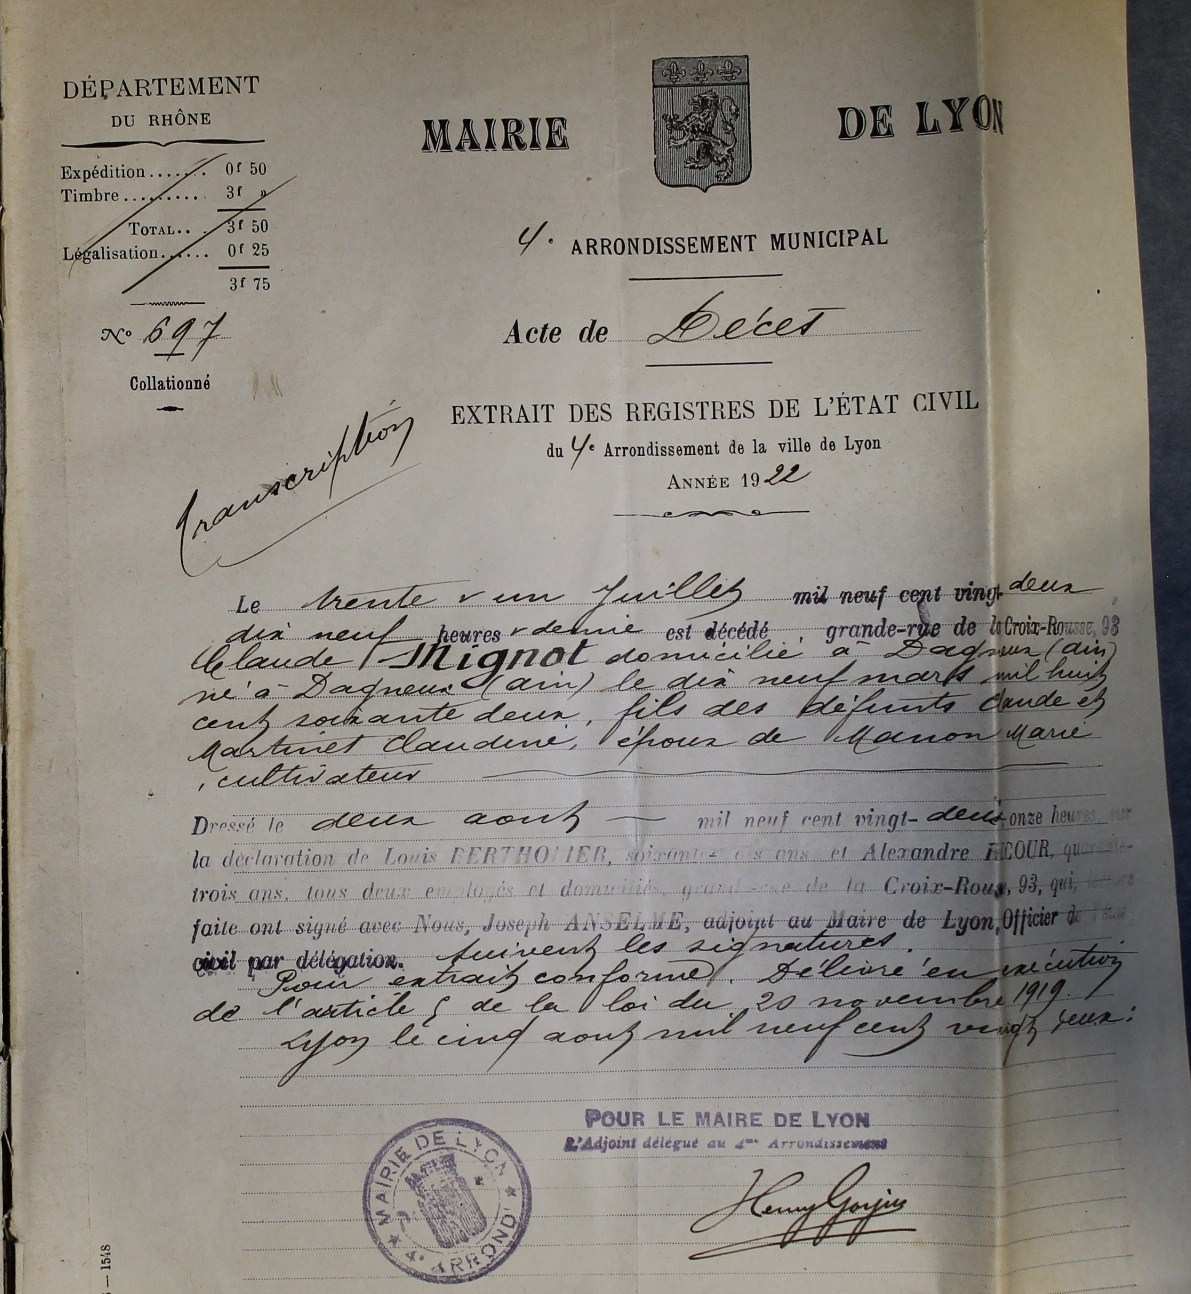 DÉPARTEMENT
DU RHÔNE
Expédition....... 0f 50
Timbre.......... 3f "
TOTAL... 3f 50
Légalisation...... 0f 25
3f 75
No 697
Collationné
Transcription
MAIRIE DE LYON
4e ARRONDISSEMENT MUNICIPAL
Acte de Décès
EXTRAIT DES REGISTRES DE L'ÉTAT CIVIL
du 4e Arrondissement de la ville de Lyon
ANNÉE 1922
Le trente & un Juillet mil neuf cent vingt deux
dix neuf heures & demie est décédé, grande-rue de la Croix-Rousse, 93
Claude Mignot domicilié à Dagneux (ain)
né à Dagneux (ain) le dix neuf mars mil huit
cent soixante deux, fils des défunts Claude et
Martinet Claudine, époux de Manon Marie
, cultivateur
Dressé le deux août — mil neuf cent vingt-deux, onze heures, sur
la déclaration de Louis BERTHOMIER, soixante- ans et Alexandre RICOUR, quarante-
trois ans, tous deux employés et domiciliés, grande-rue de la Croix-Rousse, 93, qui, lecture
faite ont signé avec Nous, Joseph ANSELME, adjoint au Maire de Lyon, Officier de l'état
civil par délégation. Suivent les signatures.
Pour extrait conforme. Délivré en exécution
de l'article 5 de la loi du 20 novembre 1919.
Lyon le cinq août mil neuf cent vingt deux.
POUR LE MAIRE DE LYON
L'Adjoint délégué au 4me Arrondissement
MAIRIE DE LYON
4e ARROND
1548